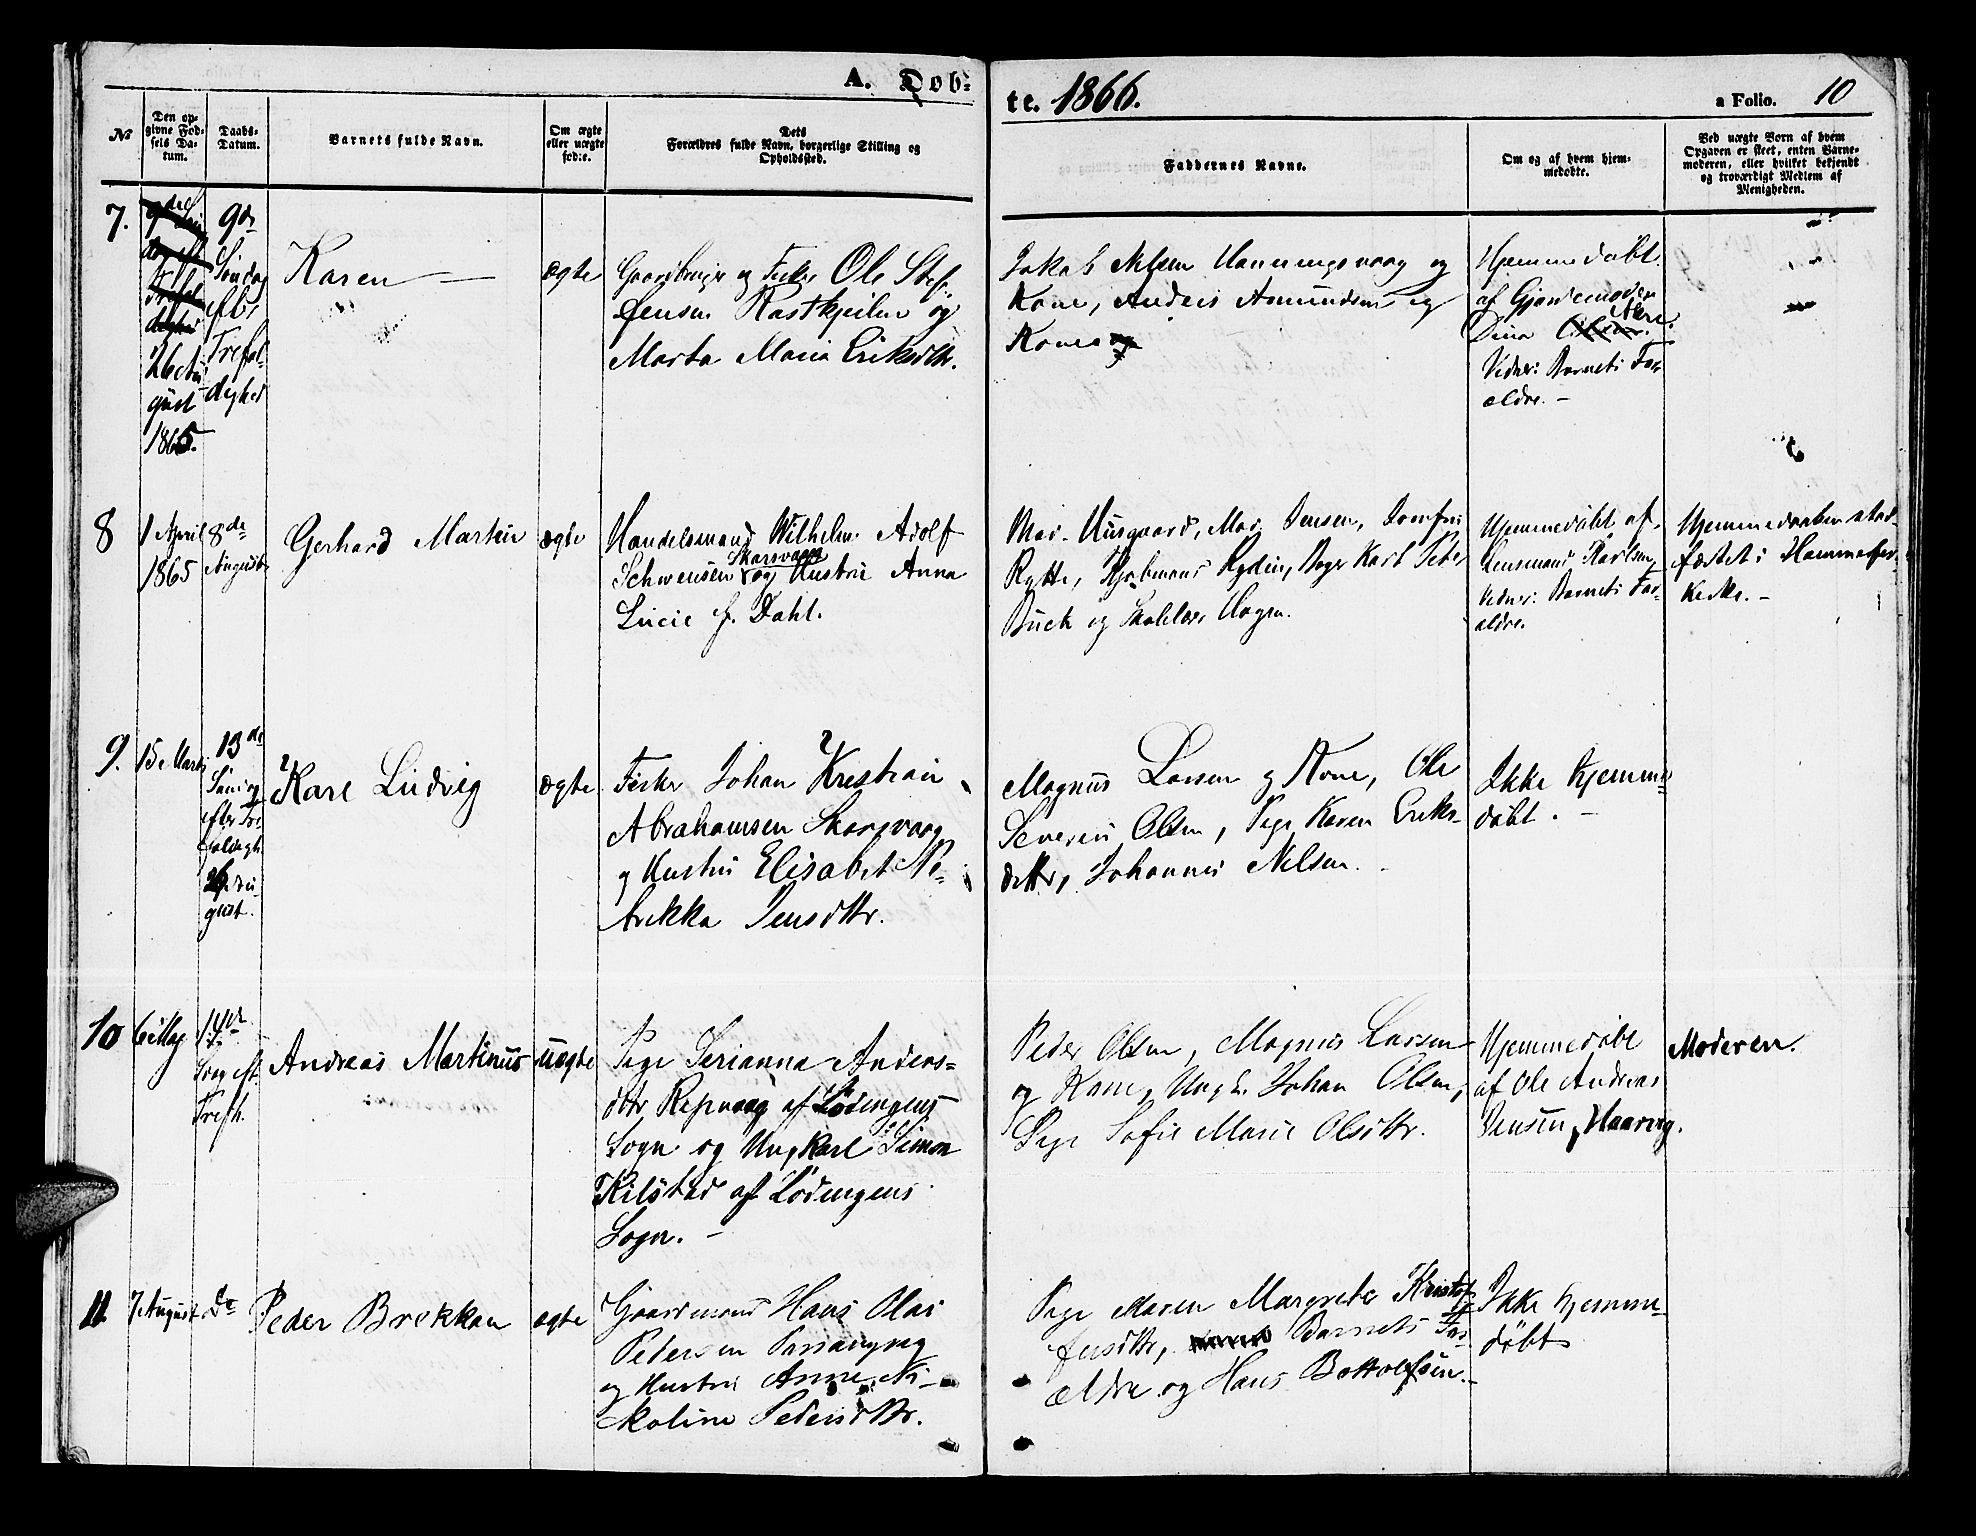 A. Døb-
te. 1866.
a Folio. 10
No
Den op-
givne Fød-
sels Da-
tum.
Daabs-
Datum.
Barnets fulde Navn.
Om ægte
eller uægte
født.
Dets
Forældres fulde Navn, borgerlige Stilling og
Opholdssted.
Faddernes Navne.
Om og af hvem hjem-
medøbte.
Ved uægte Børn af hvem
Opgaven er skeet, enten Barne-
moderen, eller hvilket bekjendt
og troværdigt Medlem af
Menigheden.
7.
26 Au-
gust
1865.
9de
Søndag
eft.
Trefol-
dighed
Karen
ægte
Gaardbruger og Fisker Ole Stef-
fensen Kastkjeilen og
Marta Maria Eriksdtr.
Jakob Nilsen Honningsvaag og
Kone, Anders Amundsen og
Kone
Hjemmedøbt
af Gjordemoder
Dina
Vidner: Barnets For-
ældre. -
8
1 April
1865
8de
August
Gerhard Martin
ægte
Handelsmand Wilhelm Adolf
Skarsvaag
Schwensen og Hustru Anna
Lucie f. Dahl.
Mad. Husgaard, Mad. Jensen, Jomfru
Rytte, Kjøbmand Rydin, Peder
Buck og Skolelærer Hagen.
Hjemmedøbt af
Lensmand Karlsen,
Vidner: Barnets For-
ældre.
Hjemmedaaben stad-
fæstet i Hammerfest
Kirke. -
9.
15 Marts
13de
Søndag
efter Tre-
foldigh.
26 Au-
gust.
Karl Ludvig
ægte
Fisker Johan Kristian
Abrahamsen Skarsvaag
og Hustru Elisabet Re-
brekka Jensdtr.
Magnus Larsen og Kone, Ole
Severin Olsen, Pige Karen Eriks-
dttr, Johannes Nilsen. -
Ikke hjemme-
døbt. -
10
6 Maj
14de
Søndag eft.
Trefh.
Andreas Martinus
uægte
Pige Serianna Anders-
dttr Repvaag af Lødingens
Sogn og Ungkarl Simon
Kilstad af Lødingens
Sogn. -
Peder Olsen, Magnus Larsen
og Kone, Ungk. Johan Olsen,
Pige Sofie Marie Olsdttr.
Hjemmedøbt
af Ole Andreas
Jensen, Haarvig.
Moderen.
11.
7 August
Do
Peder Brekkan
ægte
Gaardmand Hans Olai
Petersen Porsangvaag
og Hustru Anne Ni-
koline Pedersdttr.
Pige Maren Margrete Kristof-
fersdttr, Barnets For-
ældre og Hans Bottolfsen. -
Ikke hjemme-
døbt